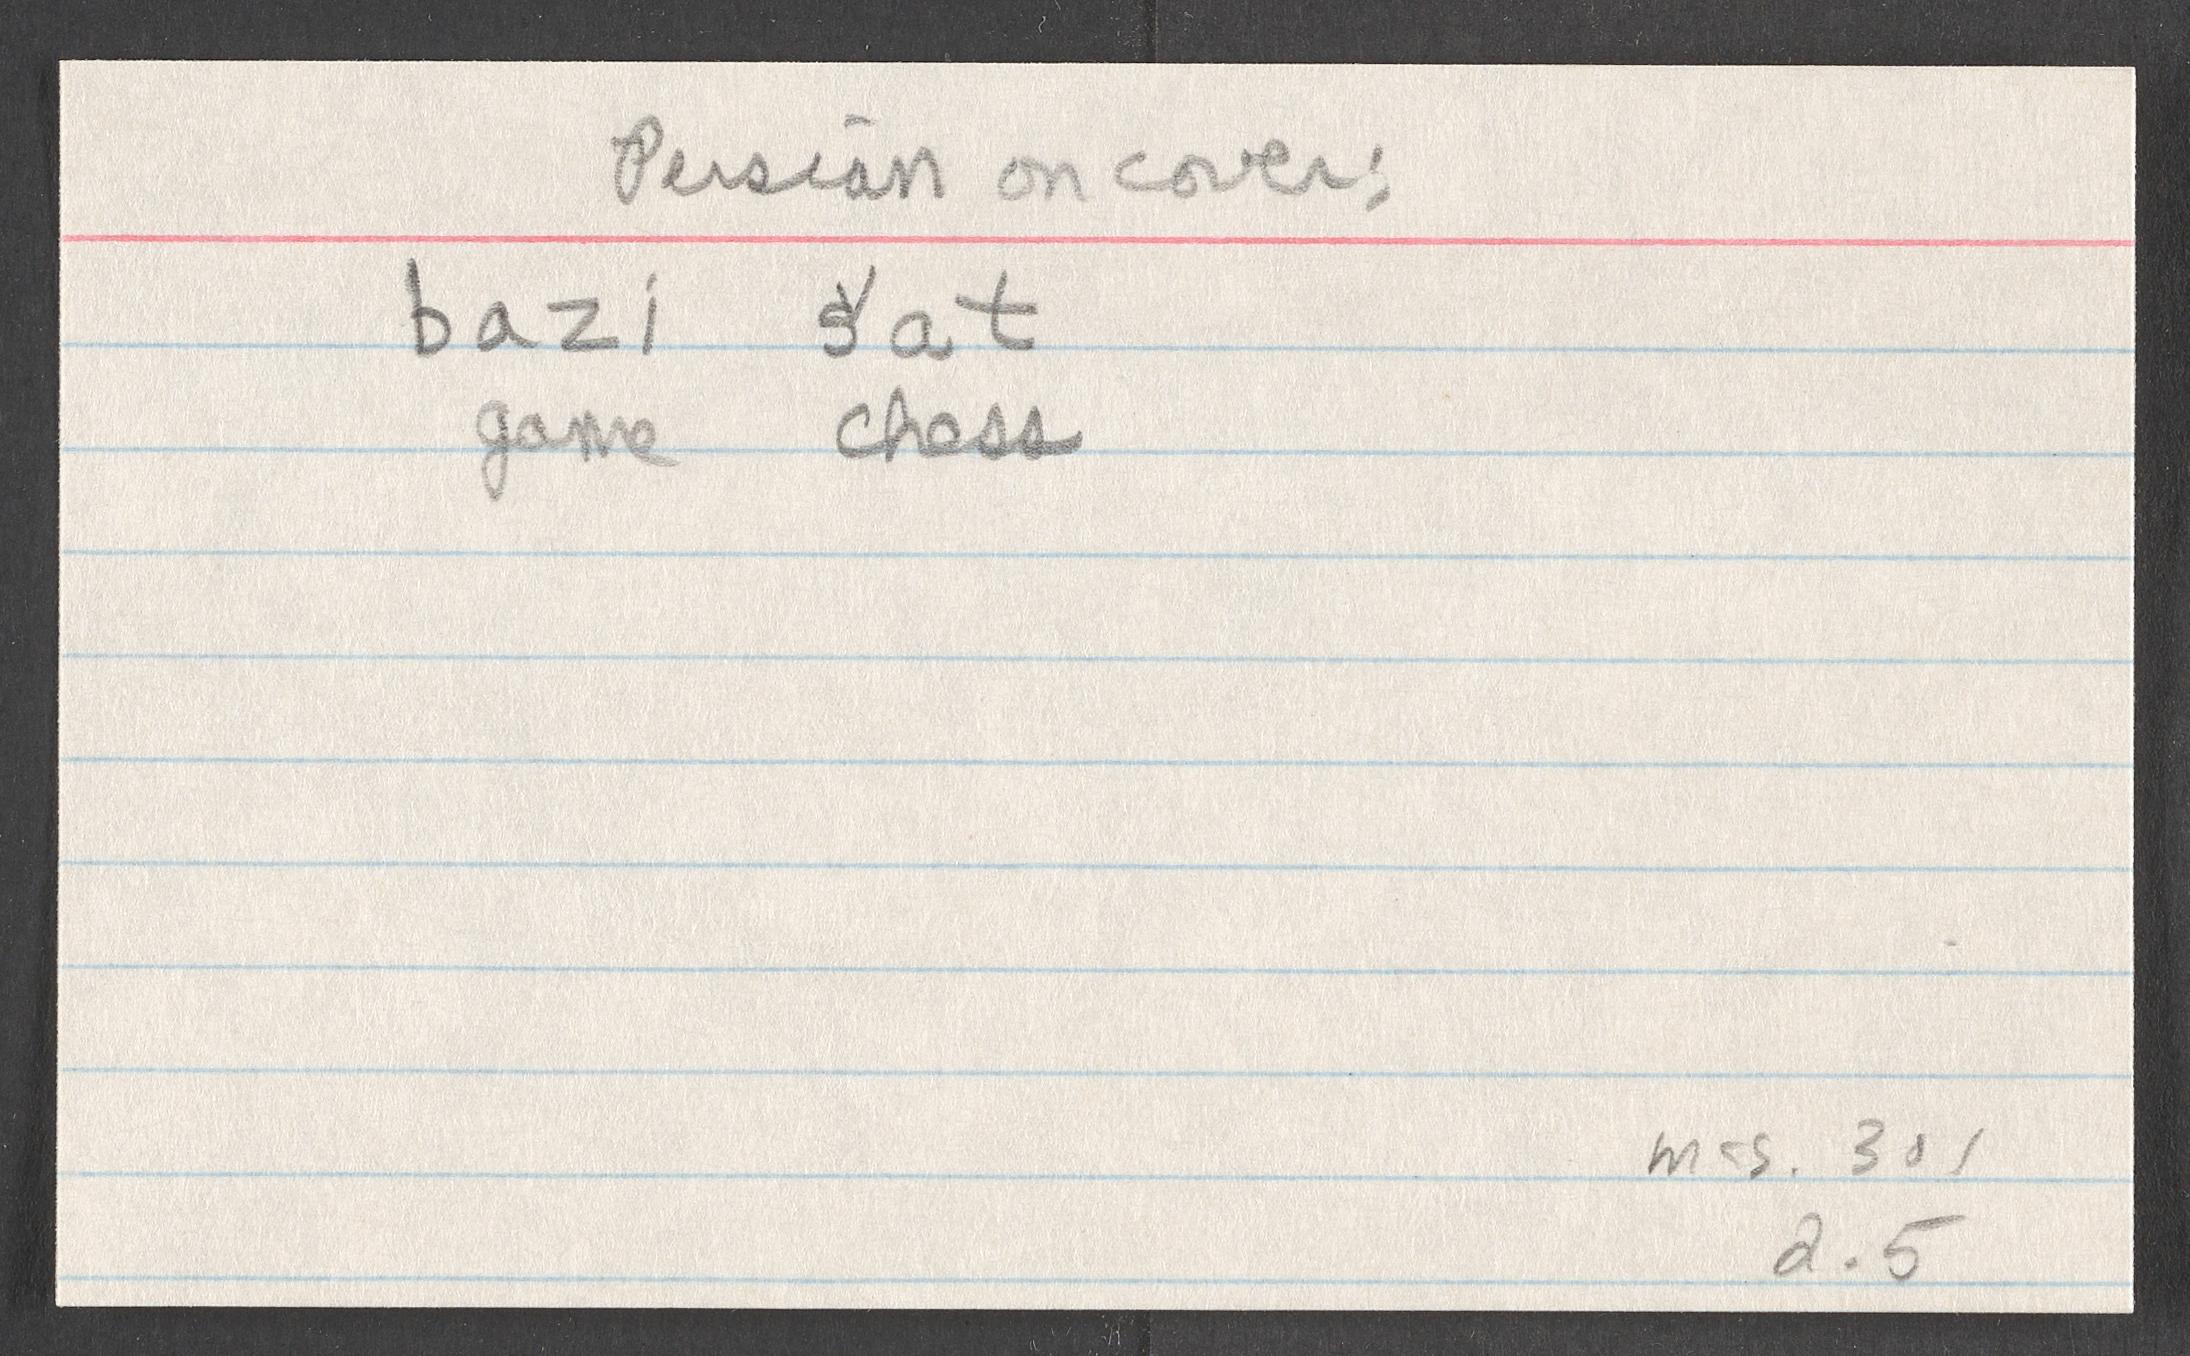 Persian on cover:
bazi šat
game chess
mss. 301
2.5